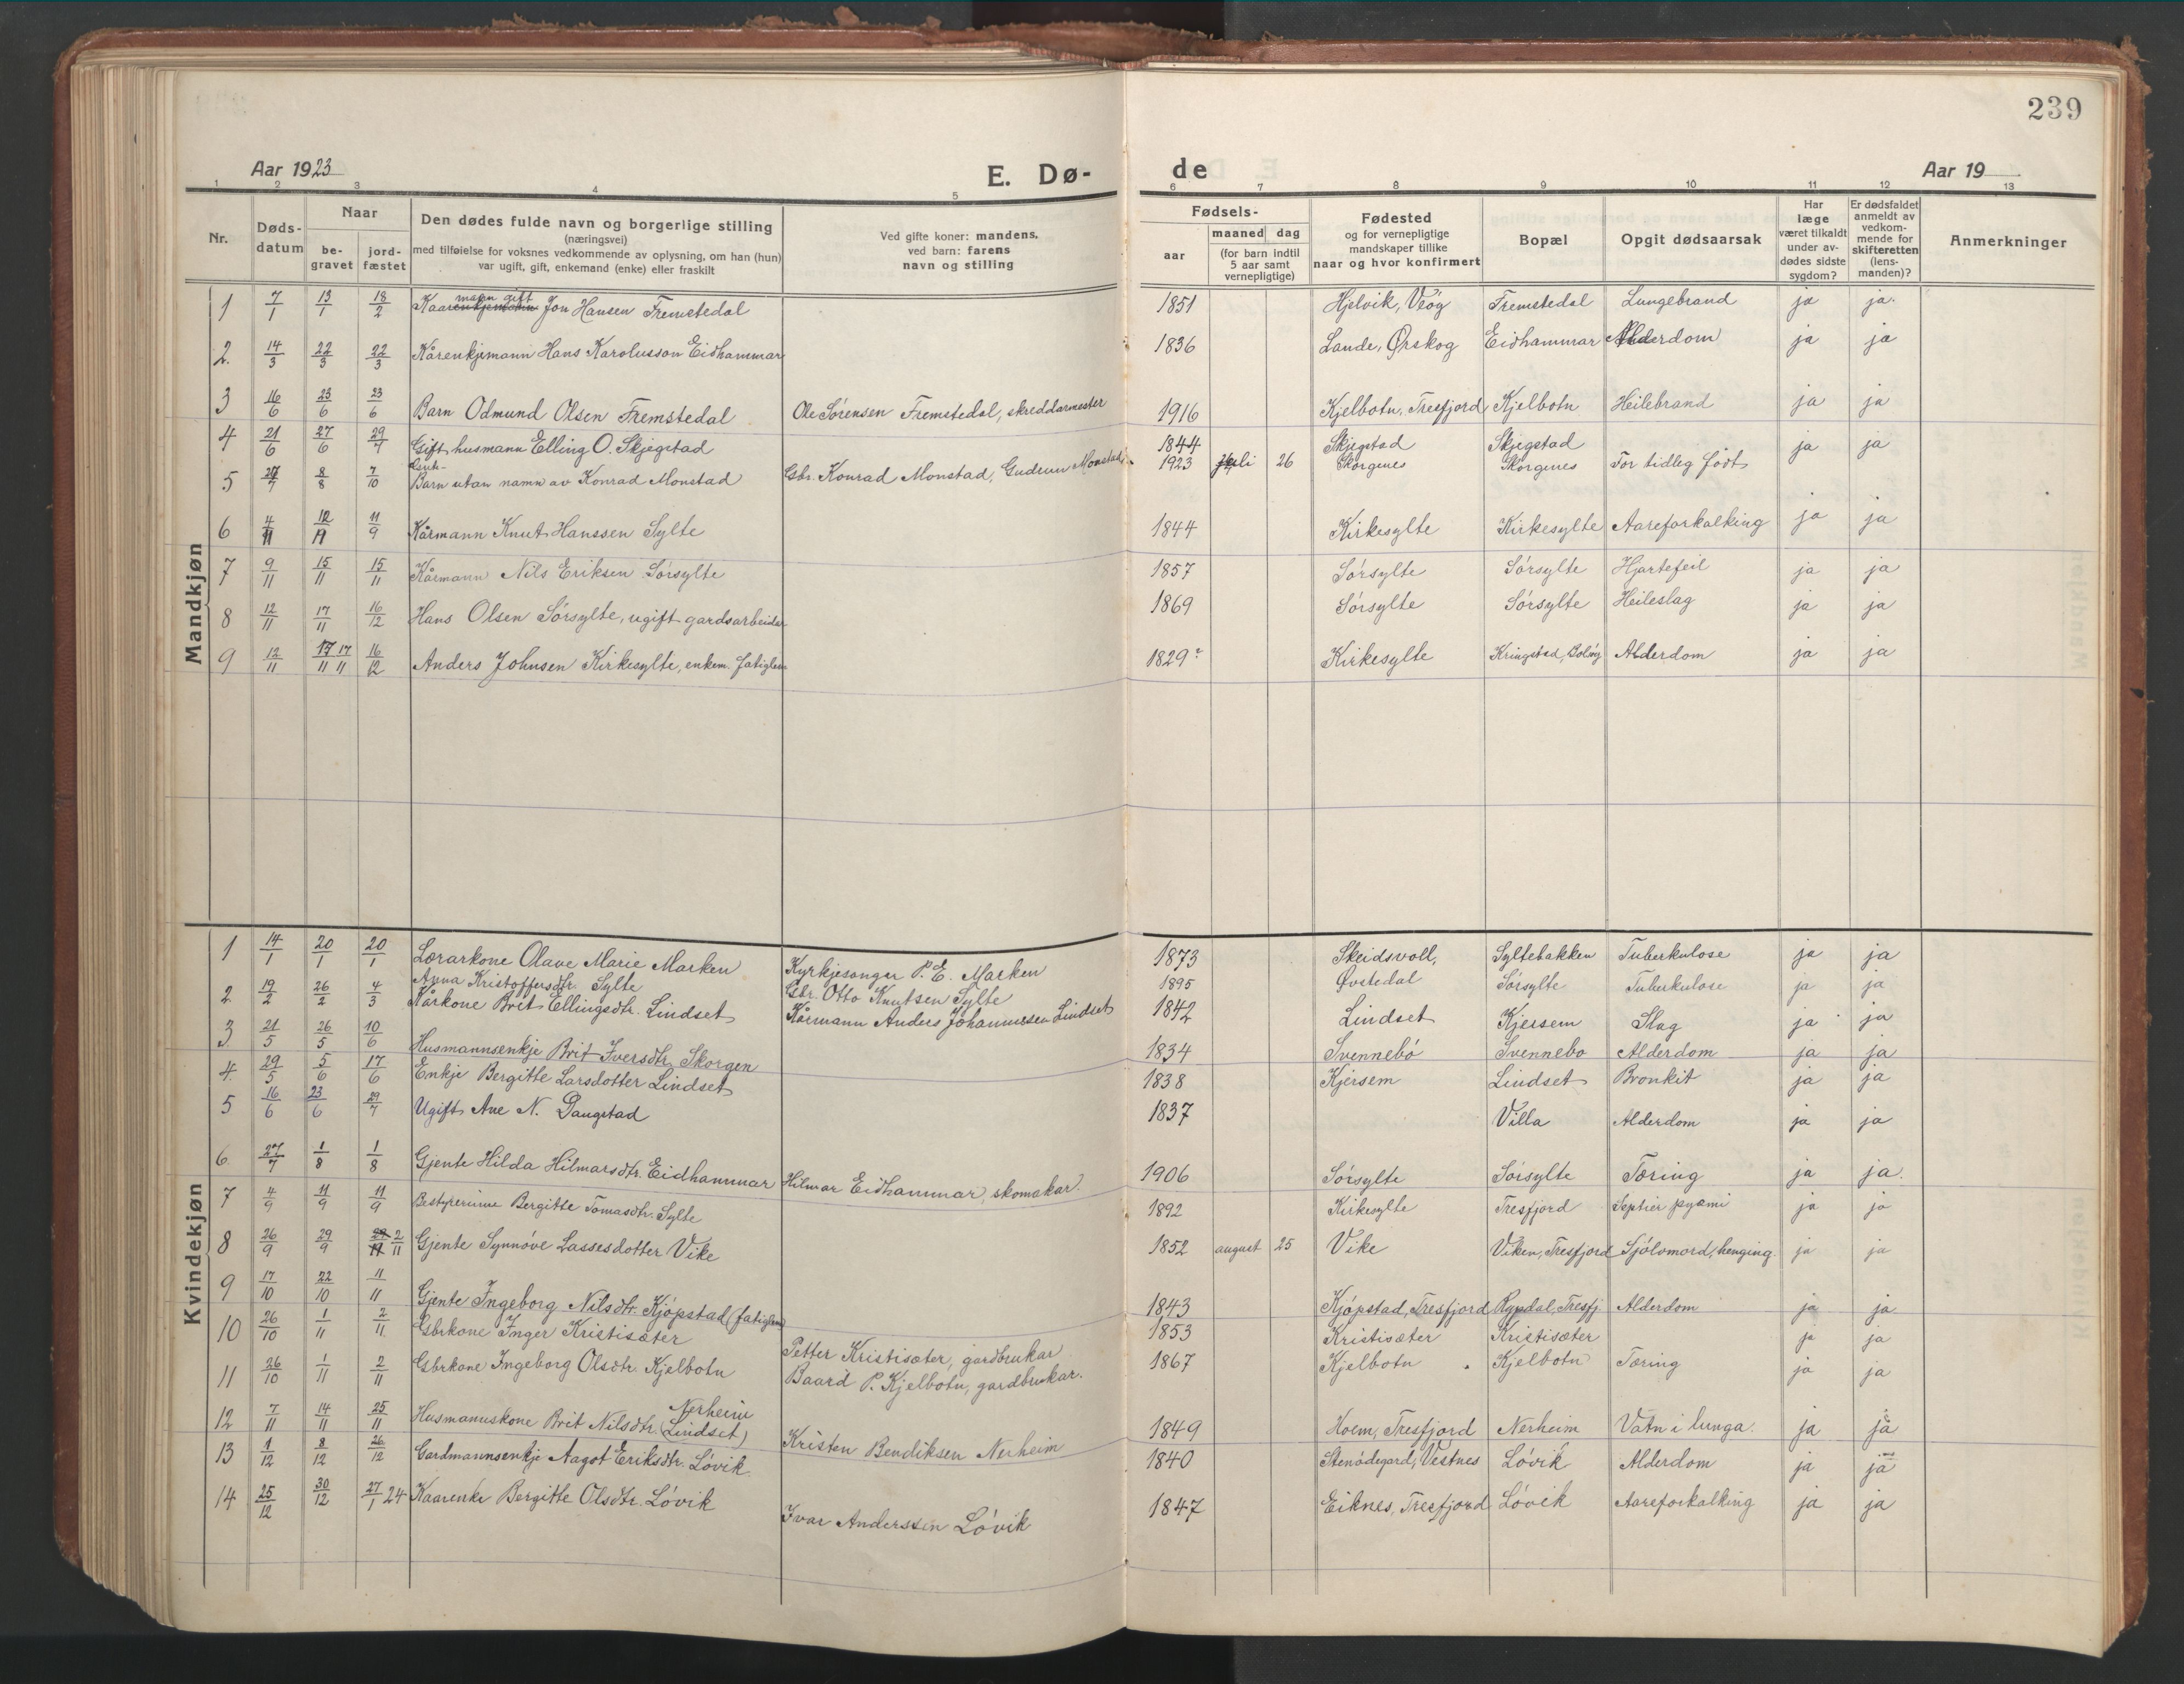 239
Aar 1923
E. Dø-
de
Aar 19
1 2 3 4 5 6 7 8 9 10 11 12 13
Nr.
Døds-
datum
Naar
be-
gravet
jord-
fæstet
Den dødes fulde navn og borgerlige stilling
(næringsvei)
med tilføielse for voksnes vedkommende av oplysning, om han (hun)
var ugift, gift, enkemand (enke) eller fraskilt
Ved gifte koner: mandens,
ved barn: farens
navn og stilling
Fødsels-
aar
maaned dag
(for barn indtil
5 aar samt
vernepligtige)
Fødested
og for vernepligtige
mandskaper tillike
naar og hvor konfirmert
Bopæl
Opgit dødsaarsak
Har
læge
været tilkaldt
under av-
dødes sidste
sygdom?
Er dødsfaldet
anmeldt av
vedkom-
mende for
skifteretten
(lens-
manden)?
Anmerkninger
Mandkjøn
1 7/1 13/1 18/2 Kaarmann gift Jon Hansen Fremstedal 1851 Hjelvik, Veøy Fremstedal Lungebrand ja ja.
2. 14/3 22/3 22/3 Kårenkjemann Hans Karolusson Eidhammar 1836 Lande, Ørskog Eidhammar Alderdom ja ja
3 16/6 23/6 23/6 Barn Odmund Olsen Fremstedal Ole Sørensen Fremstedal, skreddarmester 1916 Kjelbotn, Tresfjord Kjelbotn Heilebrand ja ja
4 21/6 27/6 29/7 Gift husmann Elling O. Skjegstad 1844 Skjegstad Skjegstad ja ja
5 27/7 8/8 7/10 Barn utan namn av Konrad Monstad Gbr. Konrad Monstad, Gudrun Monstad 1923 juli 26 Skorgenes Skorgenes For tidleg født
6 4/11 12/11 11/9 Kårmann Knut Hanssen Sylte 1844 Kirkesylte Kirkesylte Aareforkalking ja ja
7 9/11 15/11 15/11 Kårmann Nils Eriksen Sørsylte 1857 Sørsylte Sørsylte Hjartefeil ja ja
8 12/11 17/11 16/12 Hans Olsen Sørsylte, ugift gardsarbeidar 1869 Sørsylte Sørsylte Heileslag ja ja
9 12/11 17/11 17/11 16/12 Anders Johnsen Kirkesylte, enkem. fatiglem 1829 Kirkesylte Kringstad, Bolsøy Alderdom ja ja
Kvindekjøn
1 14/1 20/1 20/1 Lærarkone Olave Marie Marken Kyrkjesongar P. E. Marken 1873 Skeidsvoll, Syltebakken Tuberkulose ja ja
2. 19/2 26/2 4/3 Anna Kristoffersdtr. Sylte Gbr. Otto Knutsen Sylte 1895 Øvstedal Sørsylte Tuberkulose ja ja
3. 21/5 26/5 10/6 Kårkone Brit Ellingsdtr. Lindset Kårmann Anders Johannessen Lindset 1842 Lindset Kjersem Slag ja ja
4. 29/5 5/6 17/6 Husmannsenkje Brit Iversdtr. Skorgen 1834 Svennebø Svennebø Alderdom ja ja
Enkje Bergitte Larsdotter Lindset 1838 Kjersem Lindset Bronkit ja ja
5 16/6 23/6 29/7 Ugift Ane N. Daugstad 1837 Villa Alderdom ja ja
6. 27/7 1/8 1/8 Gjente Hilda Hilmarsdtr. Eidhammar Hilmar Eidhammar, skomakar. 1906 Sørsylte Sørsylte Tæring ja ja.
7 4/9 11/9 11/9 Bestyrerinne Bergitte Tomasdtr. Sylte 1892 Kirkesylte Tresfjord Septier pyæmi ja ja
8 26/9 29/9 2/11 Gjente Synnøve Lassesdotter Vike 1852 august 25 Vike Viken, Tresfjord Sjølvmord, henging ja ja
9 17/10 22/10 11/11 Gjente Ingeborg Nilsdtr. Kjøpstad (fatiglem) 1843 Kjøpstad, Tresfjord Rypdal, Tresfj. Alderdom ja ja
10 26/10 1/11 2/11. Gbrkone Inger Kristisæter Petter Kristisæter, gardbrukar 1853 Kristisæter Kristisæter ja ja
11 26/10 1/11 2/11 Gbrkone Ingeborg Olsdtr. Kjelbotn Baard P. Kjelbotn, gardbrukar. 1867 Kjelbotn Kjelbotn Tæring ja ja
12 7/11 14/11 25/11 Husmannskone Brit Nilsdtr. Nerheim (Lindset) Kristen Bendiksen Nerheim 1849 Hoem, Tresfjord Nerheim Vatn i lunga. ja ja
13 1/12 8/12 26/12 Gardmannsenkje Aagot Eriksdtr. Løvik 1840 Stenødegard, Vestnes Løvik Alderdom ja ja
14 25/12 30/12 27/1 24 Kaarenke Bergitte Olsdtr. Løvik Ivar Anderssen Løvik 1847 Eiknes, Tresfjord Løvik Aareforkalking ja ja